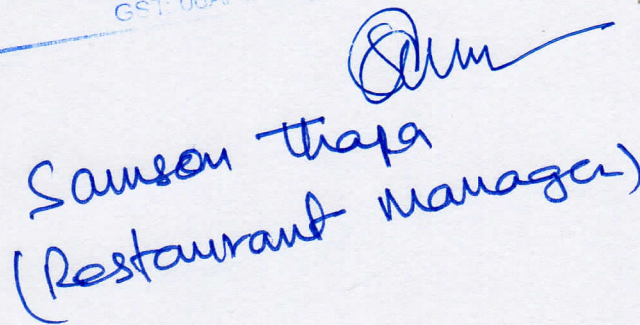 GST:
Samson Thapa
(Restaurant Manager)